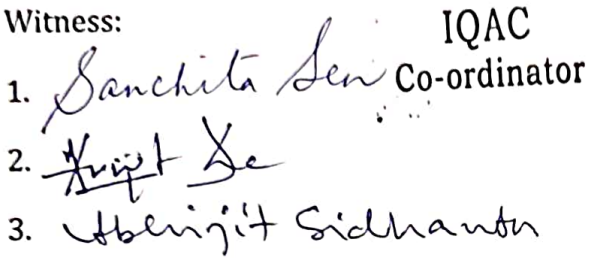 Witness:
IQAC
Co-ordinator
1. Sanchita Sen
2. De
3. Abhijit Sidhanta